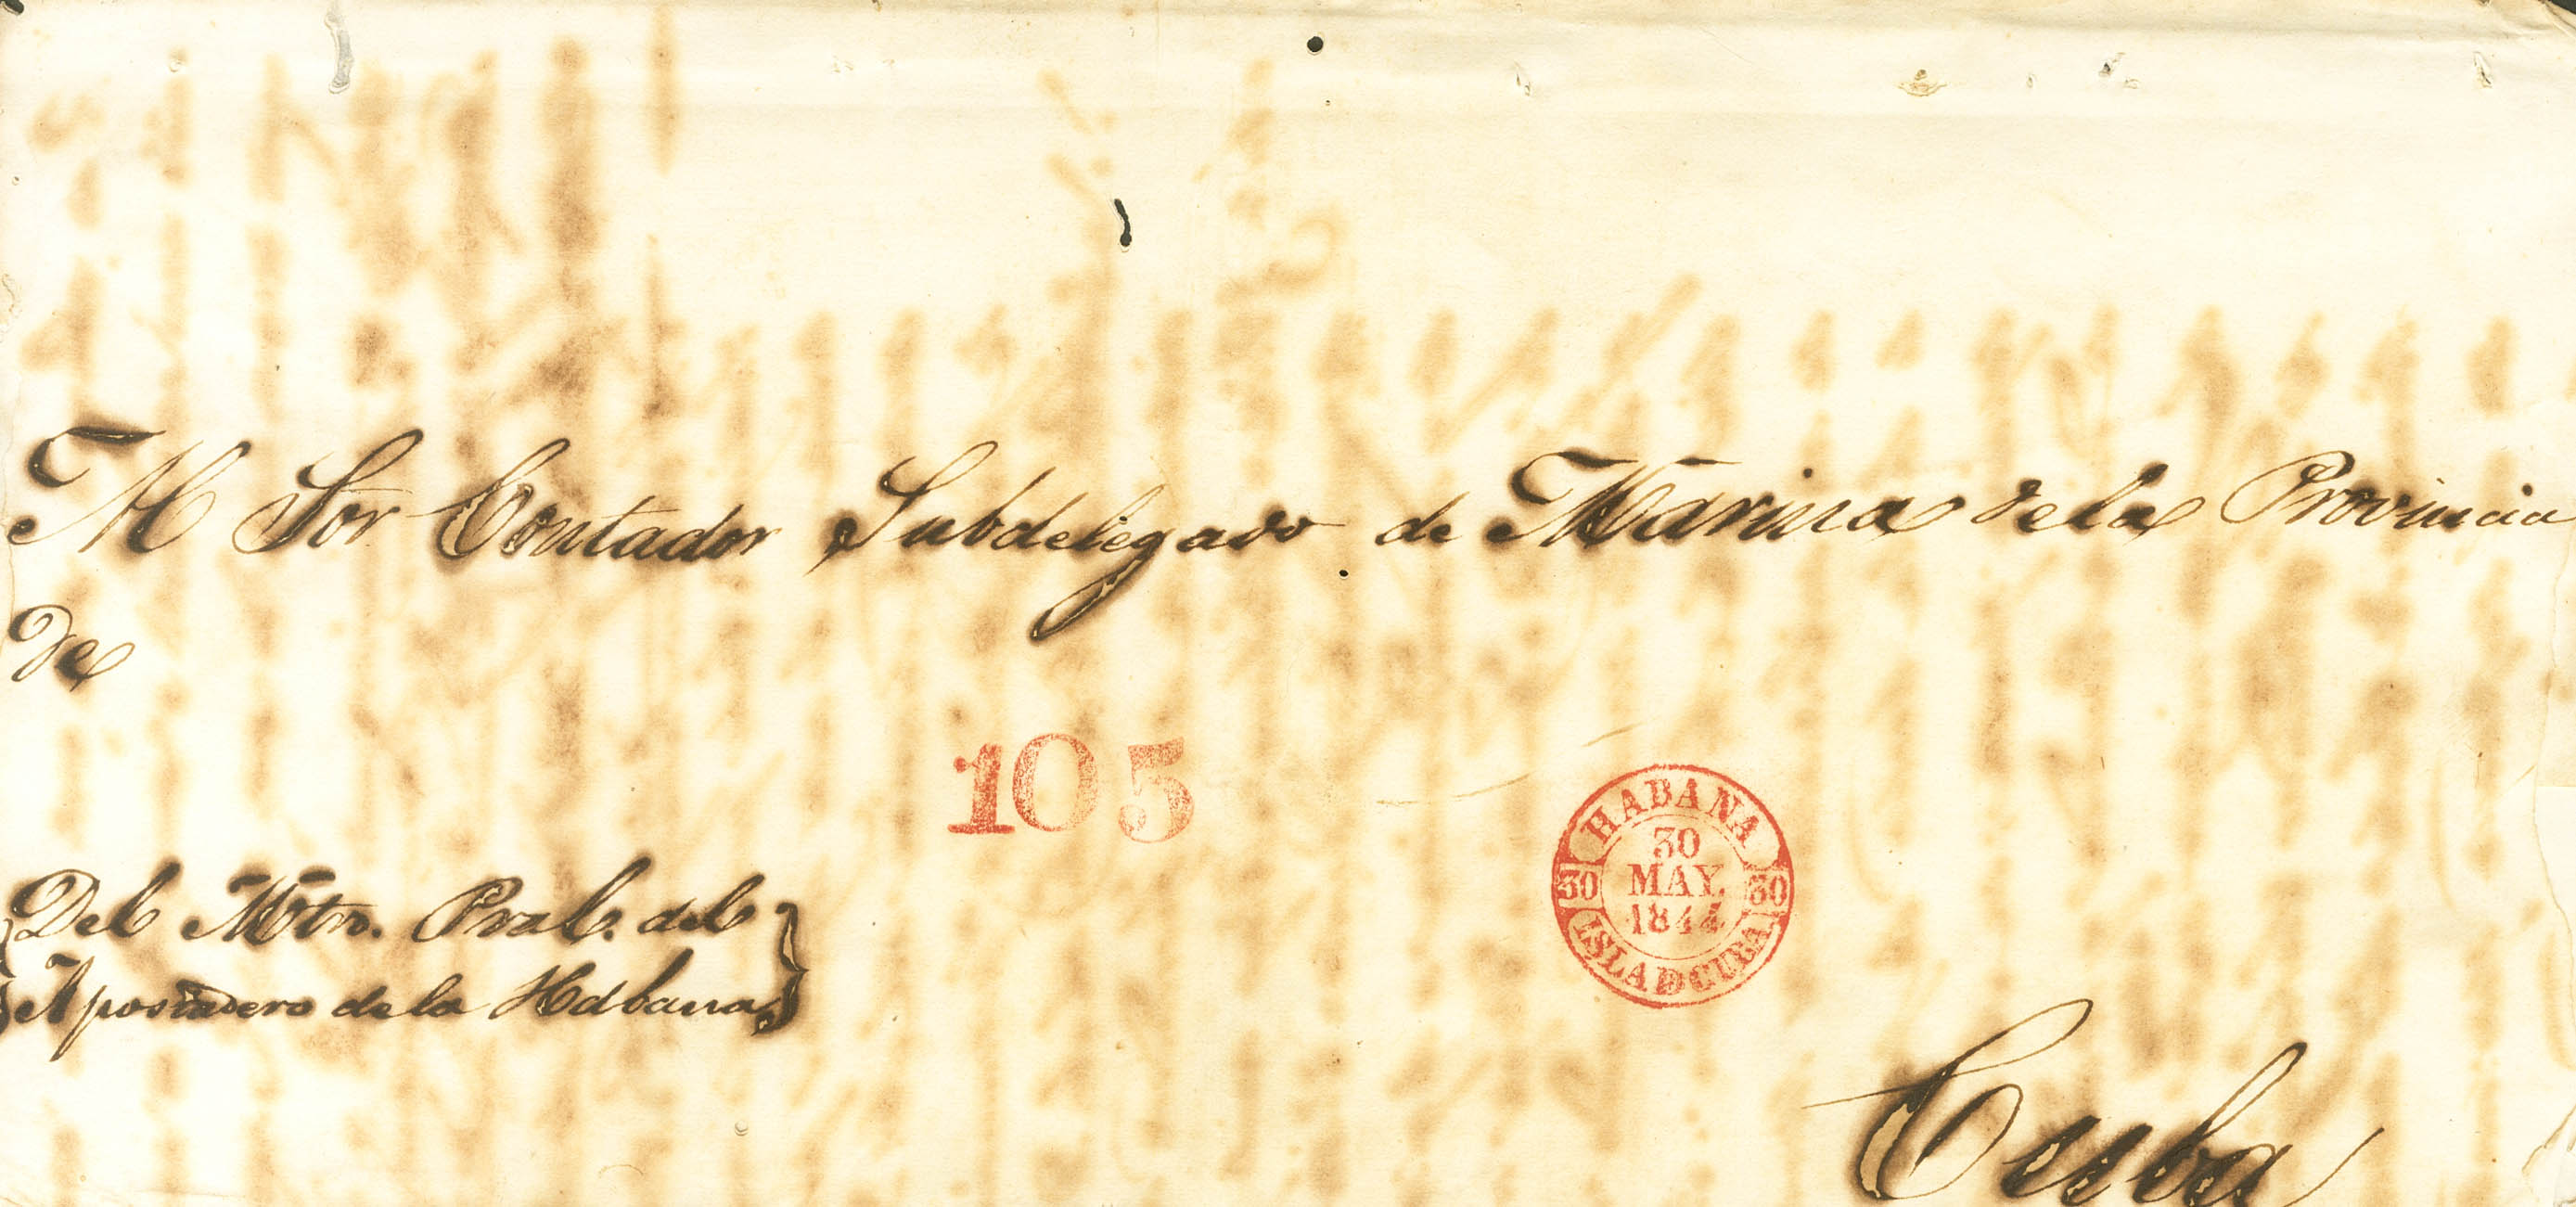 Al Sor Contador Subdelegado de Marina de la Provincia
de
105
HABANA
30
MAY.
1844
30
30
ISLA D CUBA
Del Mtro. Pral. del
Apostadero de la Habana
Cuba